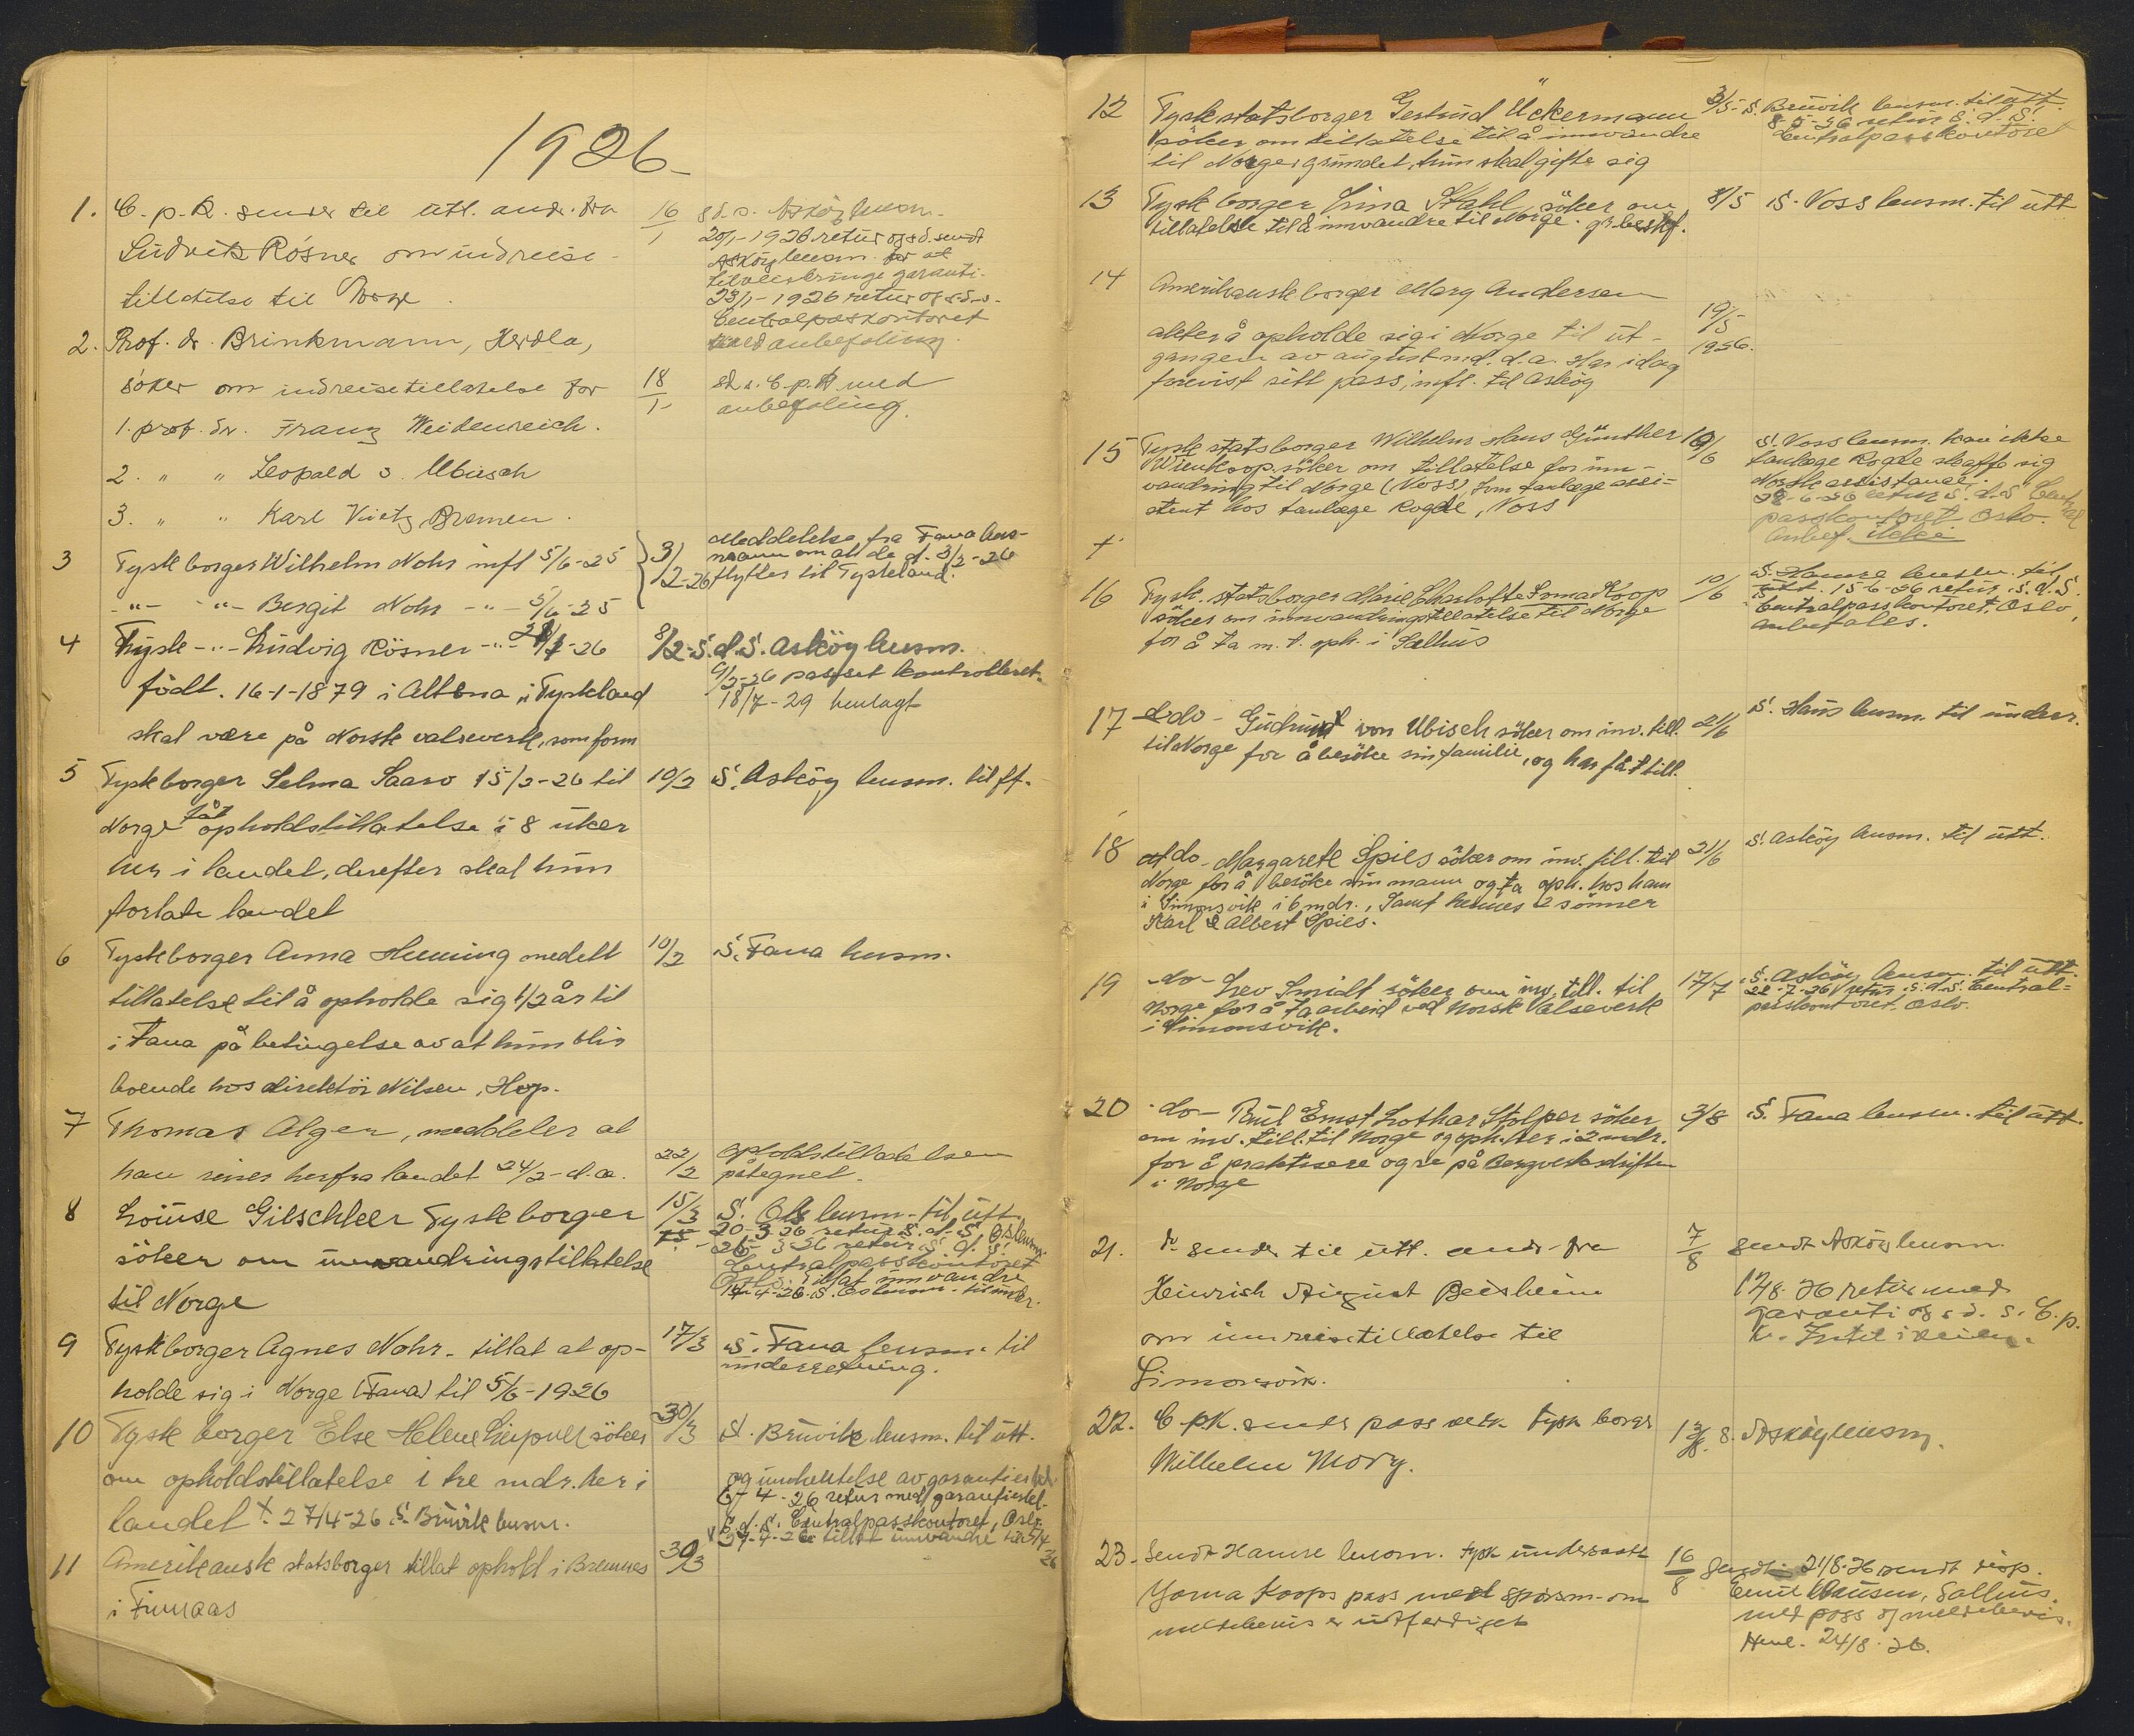 1926-
1. C.p.K. sender til utt. andr. fra
Ludvik Rösner om indreise-
tilladelse til Norge.
16/1
sd. s. Asköy lensm.
20/1-1926 retur og sd. sendt
Asköy lensm. for at
tilveiebringe garanti-
23/1-1926 retur og s.d.s.
Centralpaskontoret
med anbefaling.
2. Prof. dr. Brinkmann, Herdla,
söker om indreisetillatelse for
1. prof. dr. Franz Weidenreich.
2. " " Leopold v. Ubisch
3. " " Karl Bremen.
18/1-
sd. s. C.p.K. med
anbefaling.
3 Tysk borger Wilhelm Nohr innfl 5/6-25
-"- -"- Bergit Nohr -"- 5/6-25
3/2-26
Meddelelse fra Fana lens-
mann om at de d. 3/2-26
flytter til Tyskland.
4 Tysk -"- Ludvig Rösner -"- 28/1-26
födt. 16-1-1879 i Altena i Tyskland
skal være på Norsk valseverk, som form
8/2- S. d. S. Asköy lensm.
9/2-26 passet kontrolleret.
18/7-29 henlagt
5 Tysk borger Selma Saaro 15/2-26 til
Norge fåt opholdstillatelse i 8 uker
her i landet, derefter skal hun
forlate landet
10/2 S. Asköy lensm. til ff.
6 Tysk borger Anna Henning meddelt
tillatelse til å opholde sig 1/2 år til
i Fana på betingelse av at hun blir
boende hos direktör Nilsen, Hop.
10/2 S. Fana lensm.
7 Thomas Alger, meddeler at
han reiser herfra landet 24/2- d.a.
22/2 opholdstilladelsen
påtegnet.
8 Louise Gilschleer Tysk borger
söker om innvandringstillatelse
til Norge
15/3 S. Os lensm. til utt.
20-3-26 retur S. d. S. Os lensm.
26-3-26 retur S. d. S.
Centralpasskontoret
Oslo. Tillat innvandre
14-4-26. S. Os lensm. til under.
9 Tysk borger Agnes Nohr- tillat at op-
holde sig i Norge (Fana) til 5/6-1926
17/3 S. Fana lensm. til
underretning.
10 Tysk borger Else Helene söker
om opholdstillatelse i tre mdr. her i
landet +. 27/4-26 S. Bruvik lensm.
30/3 S. Bruvik lensm. til utt.
og innhentelse av garantierkl.
6-4-26 retur med garantierkl.
S. d. S. Centralpasskontoret, Oslo.
27-4-26 tillat innvandre til
11 Amerikansk statsborger tillat ophold i Bremnes
i Finnaas
30/3
12 Tysk statsborger Gertrud Uckermann
söker om tillatelse til å innvandre
til Norge, grundet, hun skal gifte sig
3/5- S. Bruvik lensm. til utt.
8-5-26 retur S. d. S.
Centralpasskontoret
13 Tysk borger Lina Stahl söker om
tillatelse til å innvandre til Norge. gr. besk.
8/5 S. Voss lensm. til utt
14 Amerikansk borger Mary Andersen
akter å opholde sig i Norge til ut-
gangen av august md. d.a. Har idag
forevist sitt pass, innfl. til Asköy
19/5
1926.
15 Tysk statsborger Wilhelm Hans Günther
Wienkoop söker om tillatelse for inn-
vandring til Norge (Voss), som tanlæge assi-
stent hos tanlæge Rogde, Voss
10/6
S. Voss lensm. Kan ikke
tanlæge Rogde skaffe sig
Norsk assistanse.
28-6-26 retur S. d. S Central
passkontoret Oslo.
Anbef. ikke
+
16 Tysk. statsborger Marie Charlotte Irma Koop
söker om innvandringstillatelse til Norge
for å ta m. t. oph. i Salhus
10/6
S. Hamre lensm. til
utt. 15-6-26 retur S. d. S.
Centralpasskontoret, Oslo,
anbefales.
17 -do- Gudrun von Ubisch söker om inv. till.
til Norge for å besöke sin familie, og har fåt till.
21/6
S. Haus lensm. til underr.
18 do- Margarete Spies söker om inv. till. til
Norge for å besöke sin mann og ta oph. hos ham
i Simonsvik i 6 mdr., Samt hennes 2 sönner
Karl & Albert Spies.
21/6
S. Asköy lensm. til utt.
19 -do- Leo Smidt söker om inv. till. til
Norge for å ta arbeid ved Norsk Valseverk
i Simonsvik.
17/7
S. Asköy lensm. til utt.
22-7-26 retur S. d. S. Central-
passkontoret. Oslo.
20 -do- Paul Ernst Lothar Stolper söker
om inv. till. til Norge og oph. her i 2 mdr.
for å praktisere og se på Bergverksdriften
i Norge
3/8 S. Fana lensm. til utt.
21. sender til utt. andr. fra
Heinrich August Beisheim
om innreisetilladelse til
Simonsvik.
7/8
sendt Asköy lensm.
12/8 26 retur med
garanti og sd. s. C.p.
22. C.p.K. sender pass vedk. tysk borger
Wilhelm Mory.
13/8. S. Asköy lensm.
23- Sendt Hamre lensm. tysk undersaatt
Yorna Koops pass med spörsm. om
meldebevis er utferdiget
16/8
21/8-26 sendt
Emil Clausen, Salhus.
med pass og meldebevis.
Henl. 24/8-26.